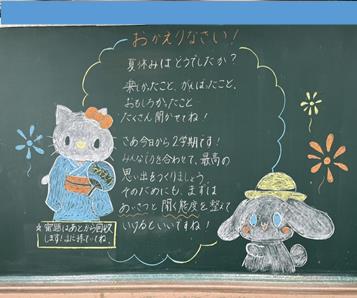 おかえりなさい!
夏休みはどうでしたか?
楽しかったこと、がんばったこと、
おもしろかったこと
たくさん聞かせてね!
さあ今日から2学期です!
みんなで力を合わせて、最高の
思い出をつくりましょう。
そのためにも、まずは
あいさつと聞く態度を整えて
いけるといいですね!
☆宿題はあとから回収
します!